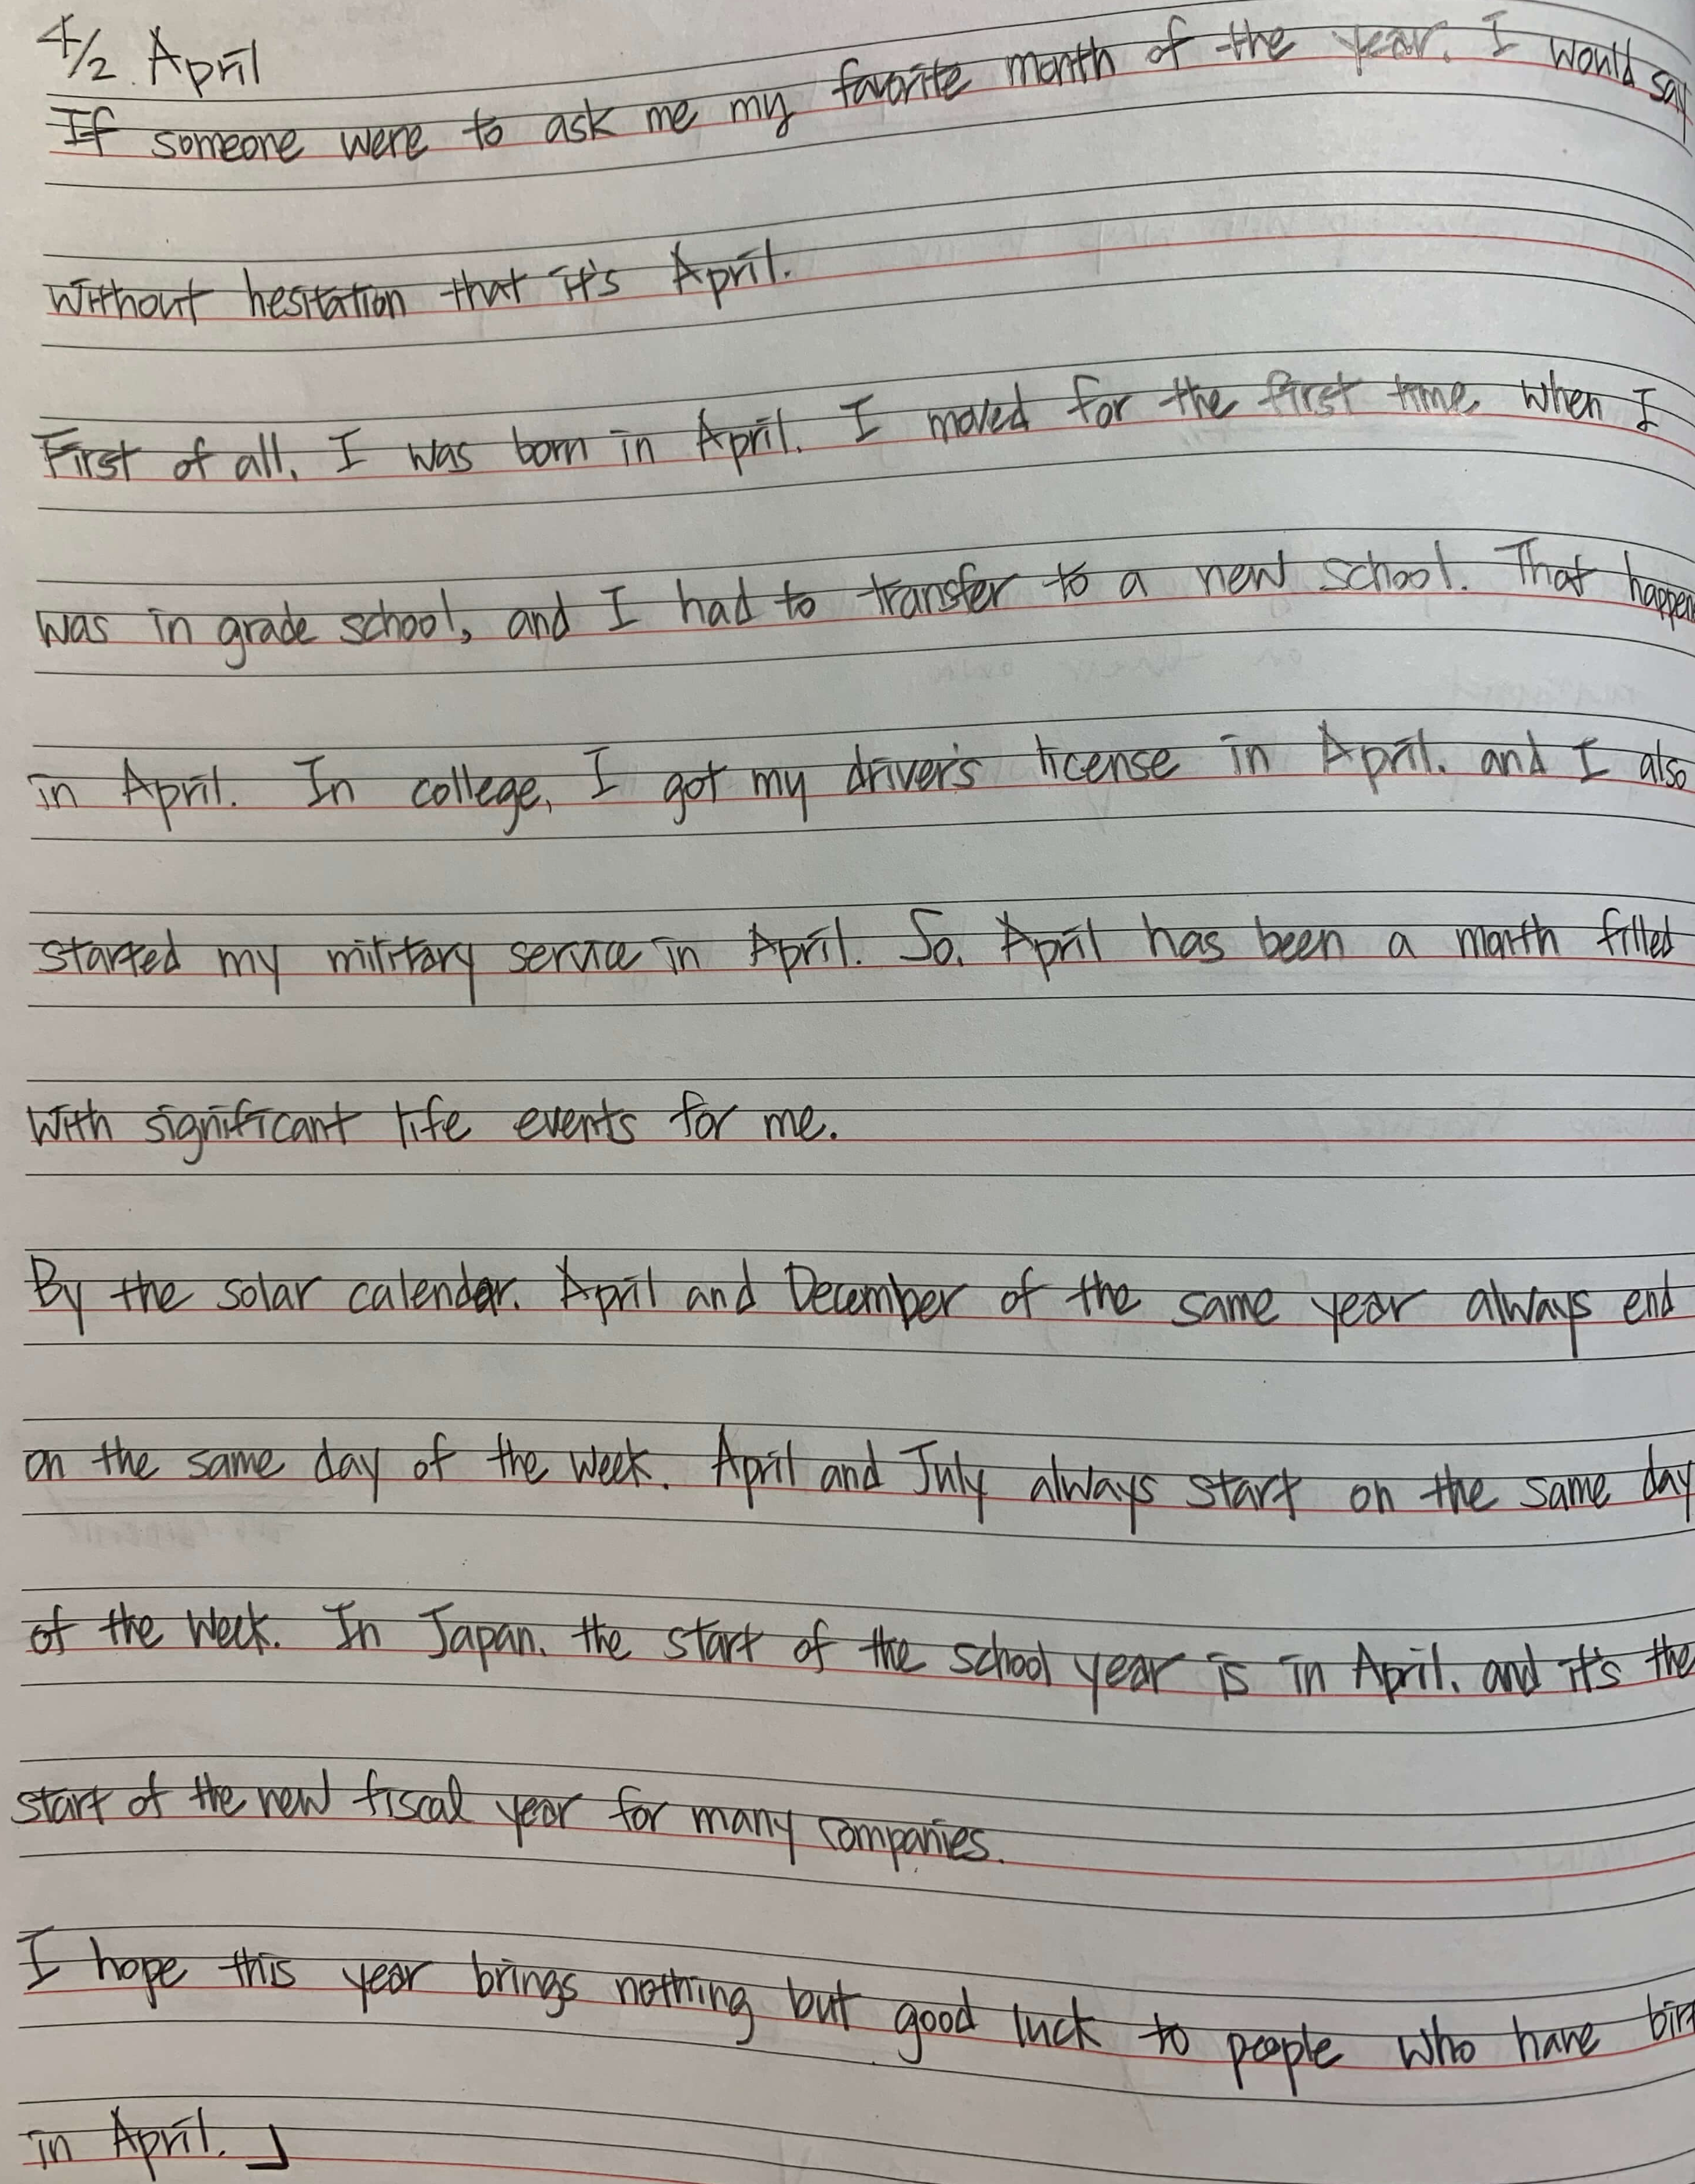 4/2. April
If someone were to ask me my favorite month of the year. I would say
without hesitation that it's April.
First of all, I was born in April. I moved for the first time when I
was in grade school, and I had to transfer to a new school. That happen
in April. In college, I got my driver's license in April, and I also
started my military service in April. So, April has been a month filled
with significant life events for me.
By the solar calendar. April and December of the same year always end
on the same day of the week. April and July always start on the same day
of the week. In Japan, the start of the school year is in April, and it's the
start of the new fiscal year for many companies.
I hope this year brings nothing but good luck to people who have
in April.